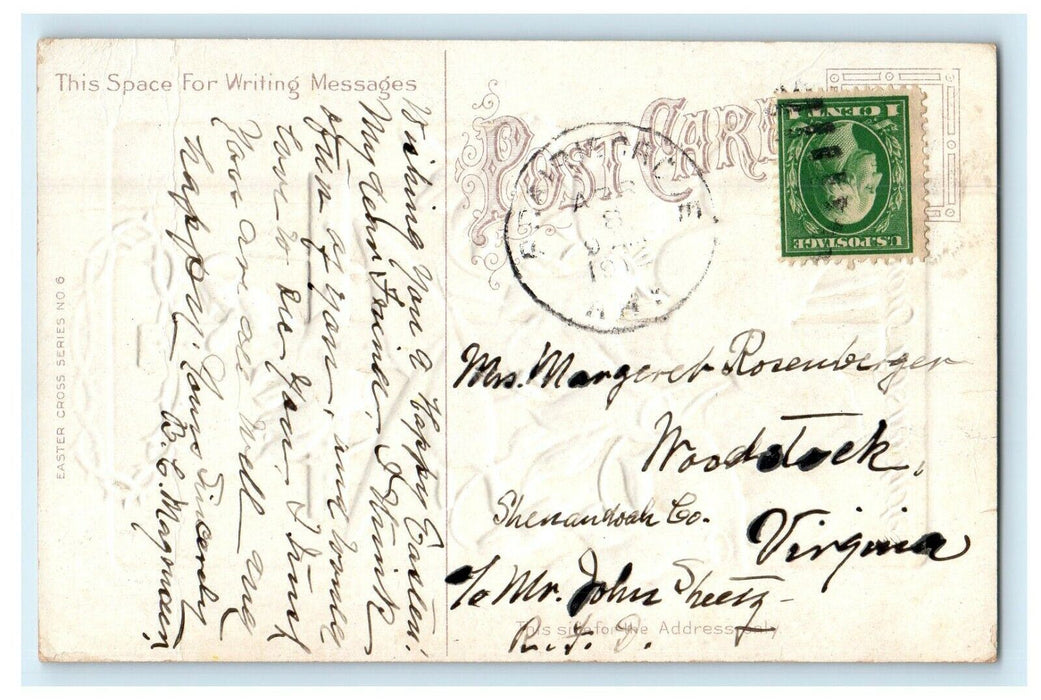 This Space For Writing Messages
Wishing You a Happy Easter.
My dear Friend, I think
often of you, and would
love to see you. I trust
You are all well and
happy. Yours Sincerely
B. C.
EASTER CROSS SERIES NO 6
POST CARD
APR
8
1912
1 CENT 1
U.S. POSTAGE
Mrs. Margaret Rosenberger
Woodstock,
Shenandoah Co.
Virginia
c/o Mr. John Sheetz
This side for the Address only
R. F. D.